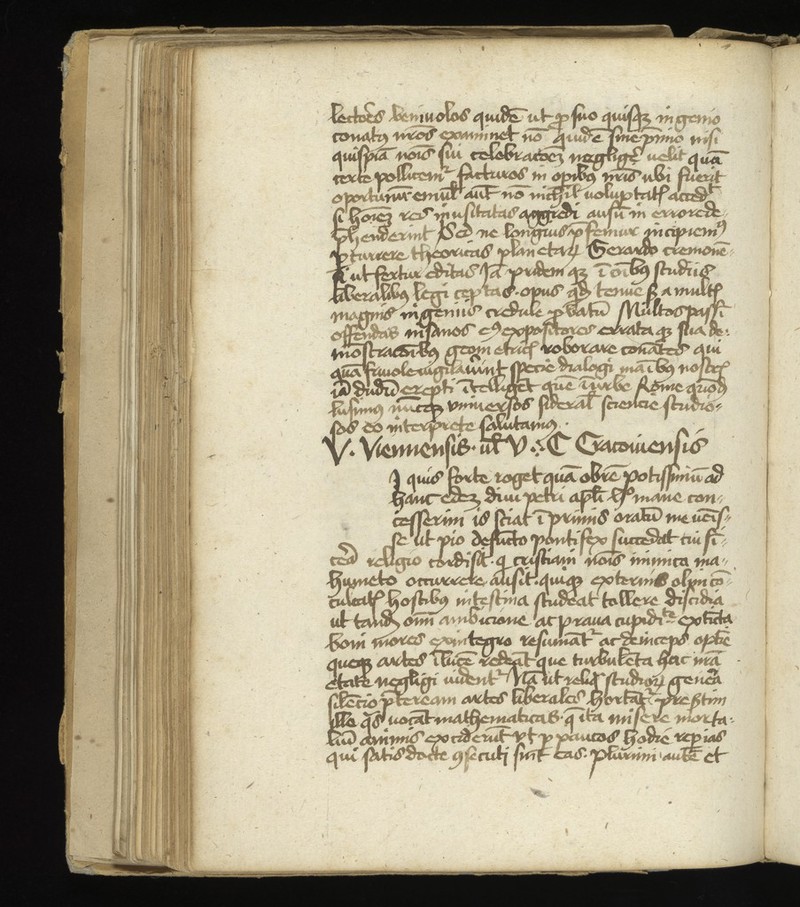 lectores benivolos quidē ut p suo quisqȝ ingenio
conatꝰ nr̄os examinet nō quidē sine p̄mio nisi
quispiā nois sui celebratōeȝ negligere velit quā
certe pollicemr̄ facturos in opibꝰ nr̄is ubi fuerit
oportunū emul aūt nō nichil voluptatis accedet
si hoīeȝ res inusitatas aggredi ausū in errore de-
p̄henderint Sed ne longius p̄femur incipiemꝰ
pcurrere theoricas planetarꝝ Gerardo cremonē-
si ut fertur editas Jā pridem qȝ ī oibꝰ studiis
liberalibꝰ legi ceptas opus qd̄ tenue sꝫ a multis
magnis ingeniis credule pbatū Multos passī
offendas nō sanos eiꝰ expositores errata qȝ sua de-
mostracōibꝰ geometricis roborare conātes qui
quā frivole vigilaverint specie dialogi manibꝰ nostris
iā dudū erepti ītelliget que ī urbe Rome quondā
lusimus nūcqȝ universos sideralis sciencie studio-
sos eo interprete salutamus
V. Viennensis. ul̄ V ∴ C Cracoviensis
I quis forte roget quā obrē potissimū ad
hanc edeȝ divi petri apl̄i mane con-
cesserim is sciat ī primis oratū me venis-
se ut pio defūcto pontifex succedat cui sī-
cera religio cordi sit. q̄ cristiani nois inimica ma-
humeto occurrere ausit. quiqȝ externis olim cō-
culcatis hostibꝰ intestina studeat tollere discidia
ut tandē omī ambicione ac prava cupidite extīcta
boni mores ex integro resumātr̄ ac deinceps optīe
queqȝ artes ī lucē redeāt que turbulēta hac nr̄a
etate negligi vident̄ Nā ut reliq̄ studiorꝝ genera
silencio p̄teream artes liberales hortātr̄ presertim
ille q̄s vocāt mathematicas. q̄ ita misere morta-
liū animis exciderūt ut p paucos hodie repias
qui satis docte ꝯsecuti sint eas. plurimi autē et